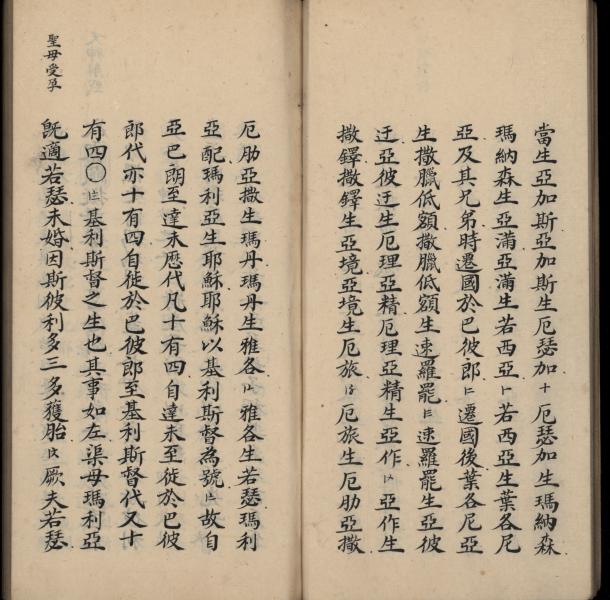 當生亞加斯亞加斯生厄瑟加十厄瑟加生瑪納森
瑪納森生亞滿亞滿生若西亞若西亞生葉各尼
亞及其兄弟時遷國於巴彼郎遷國後葉各尼亞
生撒臘低額撒臘低額生速羅罷速羅罷生亞彼
迂亞彼迂生厄理亞精厄理亞精生亞作亞作生
撒鐸撒鐸生亞境亞境生厄旅厄旅生厄肋亞撒
厄肋亞撒生瑪丹瑪丹生雅各雅各生若瑟瑪利
亞配瑪利亞生耶穌耶穌以基利斯督為號故自
亞巴朗至達未歷代凡十有四自達未至徙於巴彼
郎代亦十有四自徙於巴彼郎至基利斯督代又十
有四〇基利斯督之生也其事如左渠母瑪利亞
聖母受孕
既適若瑟未婚因斯彼利多三多獲胎厥夫若瑟